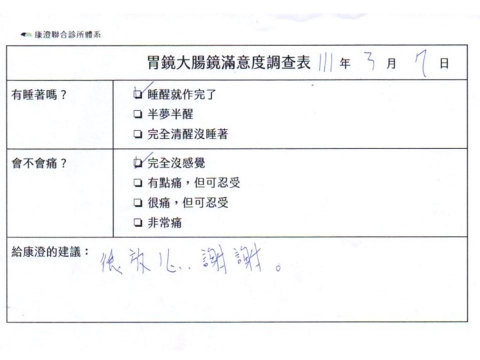 康澄聯合診所體系
胃鏡大腸鏡滿意度調查表 111 年 3 月 7 日
有睡著嗎？
☑ 睡醒就作完了
☐ 半夢半醒
☐ 完全清醒沒睡著
會不會痛？
☑ 完全沒感覺
☐ 有點痛，但可忍受
☐ 很痛，但可忍受
☐ 非常痛
給康澄的建議：
很放心..謝謝。